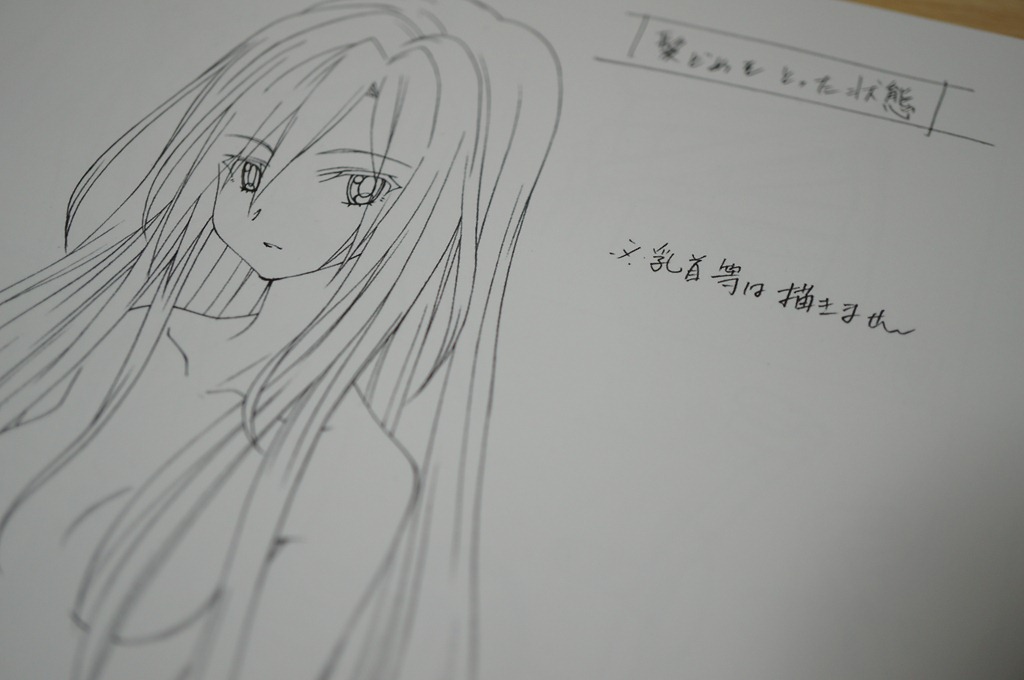 髪どめをとった状態
※乳首等は描きません